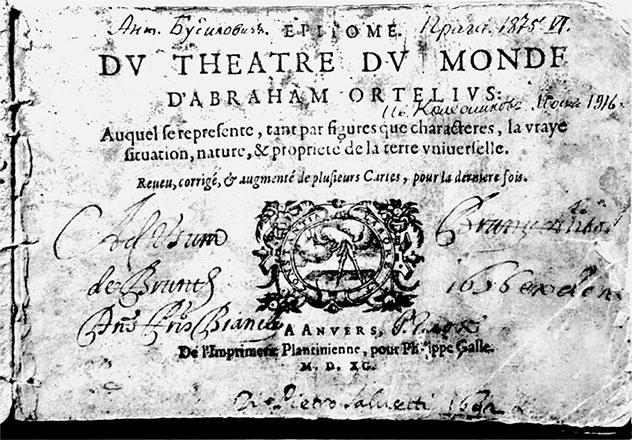 Ант. Бусиловичъ Прага 1875 VI.
EPITOME
DV THEATRE DV MONDE
D'ABRAHAM ORTELIVS:
Колесниковъ 1916
Auquel se represente, tant par figures que characteres, la vraye
situation, nature, & proprieté de la terre vniuerselle.
Reueu, corrigé, & augmenté de plusieurs Cartes, pour la derniere fois.
CONSTANTIA LABORE
de Brunth
1656
A ANVERS,
De l'Imprimerie Plantinienne, pour Philippe Galle.
M. D. XC.
Pietro Saluetti